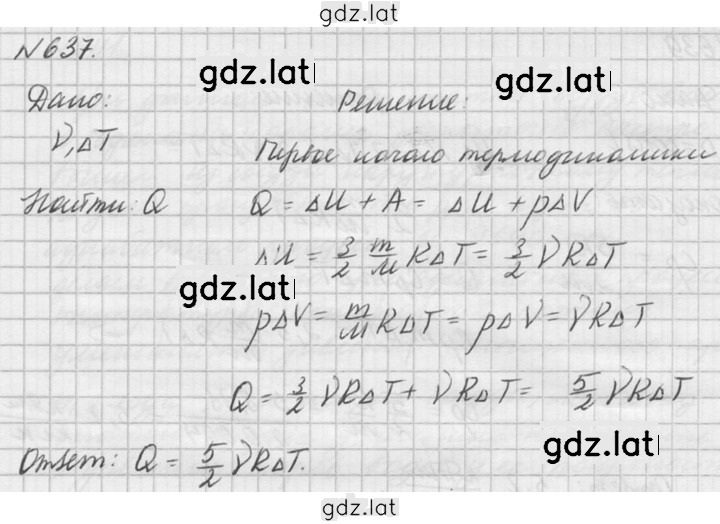 gdz.lat
N 637.
gdz.lat
Дано: Решение:
ν, ΔT Первое начало термодинамики
Найти: Q Q = ΔU + A = ΔU + pΔV
ΔU = 3/2 m/M RΔT = 3/2 νRΔT
gdz.lat
pΔV = m/M RΔT = pΔV = νRΔT
Q = 3/2 νRΔT + νRΔT = 5/2 νRΔT
gdz.lat
Ответ: Q = 5/2 νRΔT.
gdz.lat